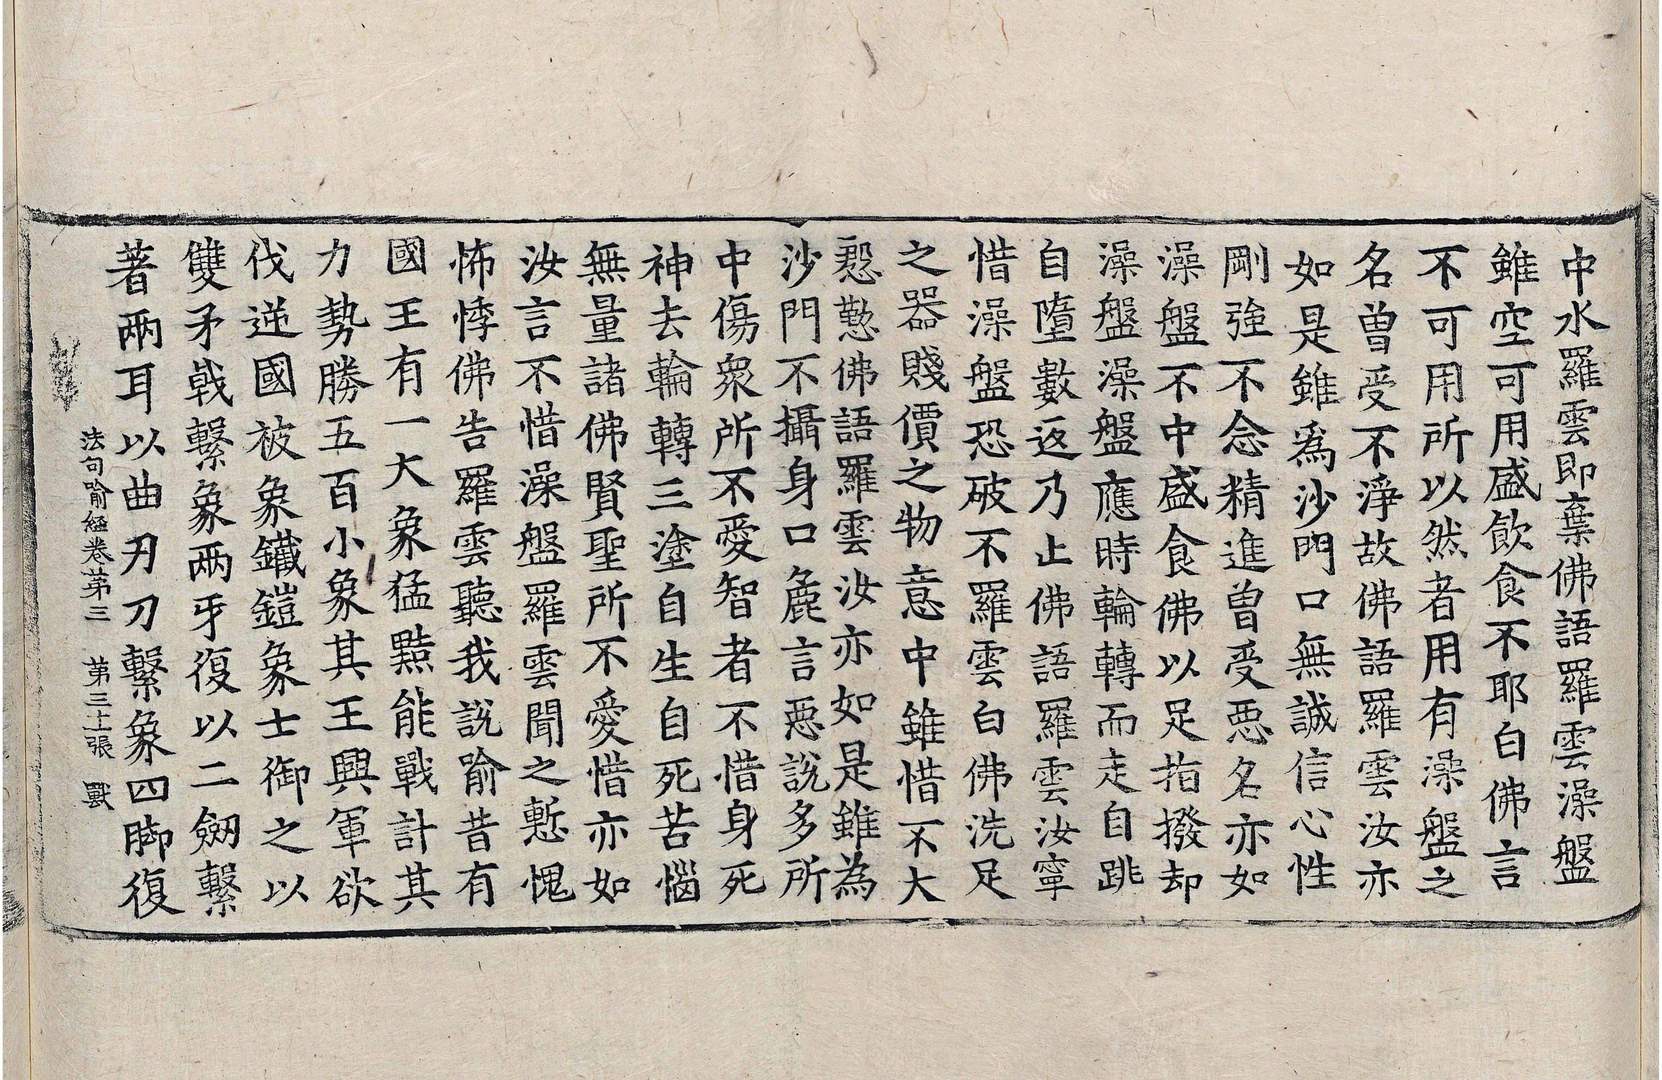 中水羅雲即棄佛語羅雲澡盤
雖空可用盛飲食不耶白佛言
不可用所以然者用有澡盤之
名曾受不淨故佛語羅雲汝亦
如是雖爲沙門口無誠信心性
剛強不念精進曾受惡名亦如
澡盤不中盛食佛以足指撥却
澡盤澡盤應時輪轉而走自跳
自墮數返乃止佛語羅雲汝寧
惜澡盤恐破不羅雲白佛洗足
之器賤價之物意中雖惜不大
慇懃佛語羅雲汝亦如是雖為
沙門不攝身口麁言惡說多所
中傷衆所不愛智者不惜身死
神去輪轉三塗自生自死苦惱
無量諸佛賢聖所不愛惜亦如
汝言不惜澡盤羅雲聞之慙愧
怖悸佛告羅雲聽我說喻昔有
國王有一大象猛黠能戰計其
力勢勝五百小象其王興軍欲
伐逆國被象鐵鎧象士御之以
雙矛戟繫象兩牙復以二劒繫
著兩耳以曲刃刀繫象四脚復
法句喻經卷第三 第三十張 戰